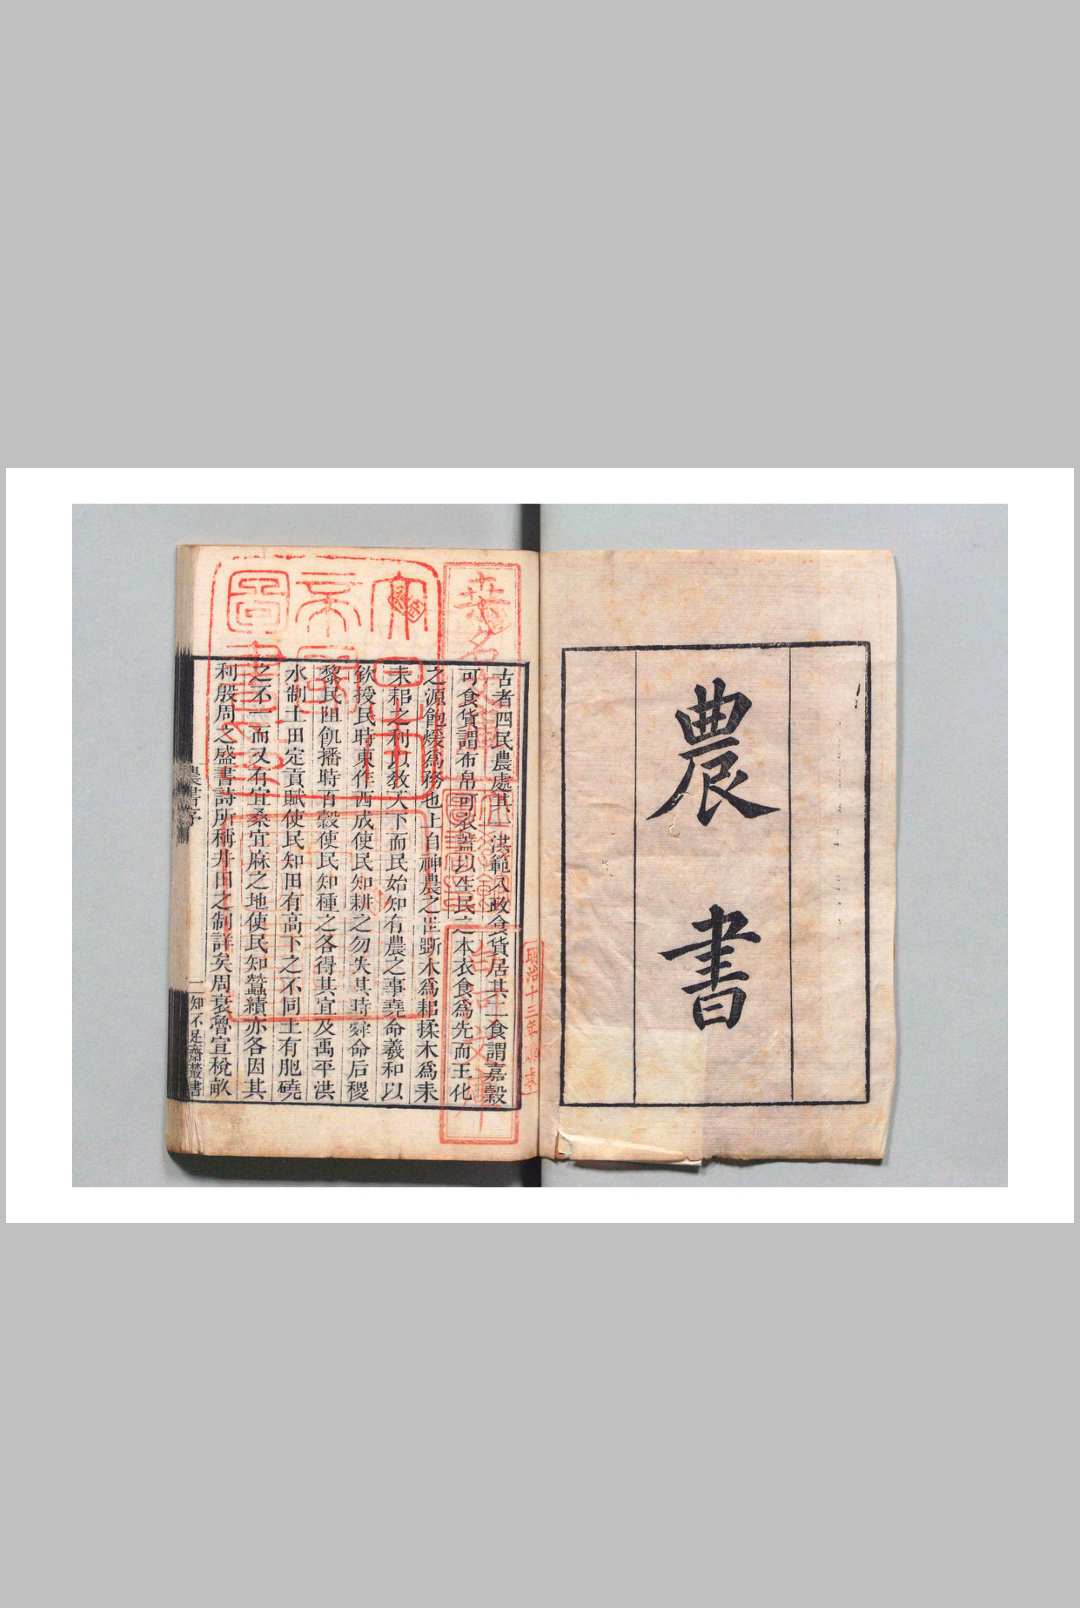 農書
古者四民農處其一洪範八政食貨居其二食謂嘉穀
可食貨謂布帛可衣蓋以生民之本衣食為先而王化
之源飽煖為務也上自神農之世斲木為耜揉木為耒
耒耜之利以敎天下而民始知有農之事堯命羲和以
欽授民時東作西成使民知耕之勿失其時舜命后稷
黎民阻飢播時百穀使民知種之各得其宜及禹平洪
水制土田定貢賦使民知田有高下之不同土有肥磽
之不一而又有宜桑宜麻之地使民知蠶績亦各因其
利殷周之盛書詩所稱井田之制詳矣周衰魯宣稅畝
農書序
一 知不足齋叢書
明治十三年